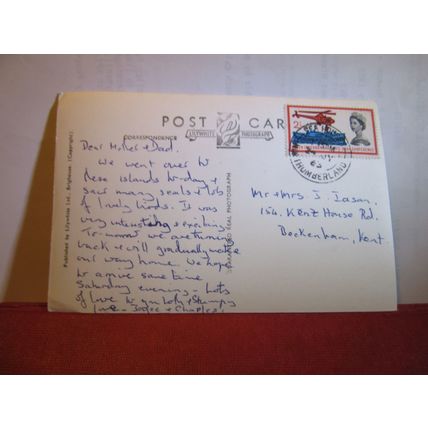 POST CARD
CORRESPONDENCE
LILYWHITE PHOTOGRAPH
Dear Mother & Dad.
We went over to
these islands to-day &
saw many seals & lots
of lovely birds. It was
very interesting & exciting.
To-morrow we are turning
back & will gradually make
our way home. We hope
to arrive some time
Saturday evening - Lots
of love to you both & Stumpy
love - Joyce & Charles.
Mr & Mrs J. Jason.
154, Kent House Rd.
Beckenham, Kent.
SEA
63
THUMBERLAND
Published by Lilywhite Ltd., Brighouse (Copyright)
GUARANTEED REAL PHOTOGRAPH